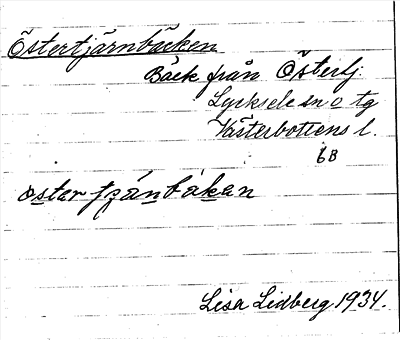 Östertjärnbäcken
Bäck från Östertj.
Lycksele sn o tg
Västerbottens l.
6B
öster tjänbäkan
Lisa Lidberg 1934.